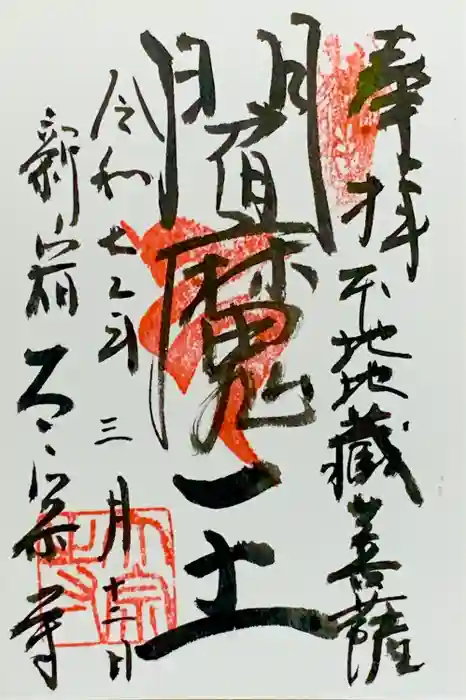 奉拝 本地地藏菩薩
閻魔王
令和七年三月十二日
新宿 太宗寺